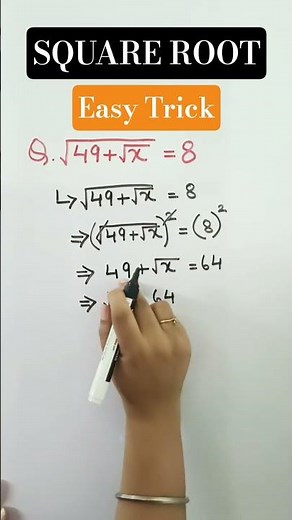 SQUARE ROOT
Easy Trick
Q. √49+√x = 8
↳ √49+√x = 8
⇒ (√49+√x)² = (8)²
⇒ 49+√x = 64
⇒ 64